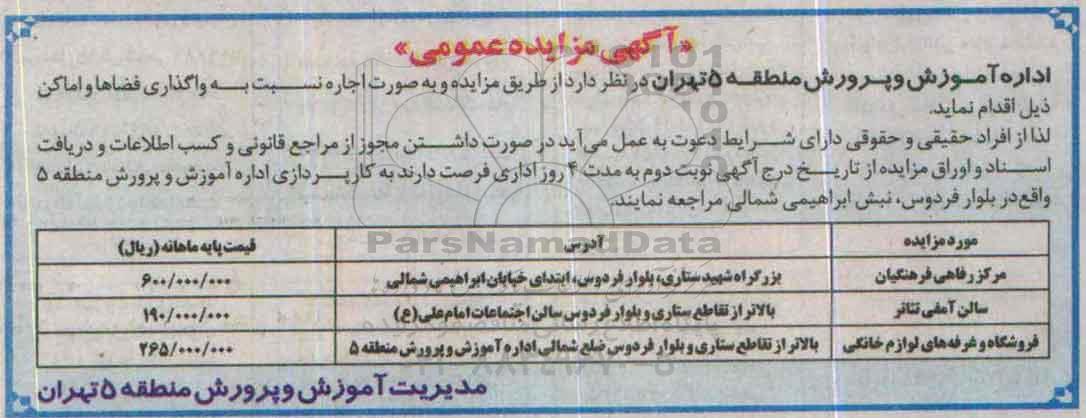 «آگهی مزایده عمومی»
اداره آموزش و پرورش منطقه ۵ تهران در نظر دارد از طریق مزایده و به صورت اجاره نسبت به واگذاری فضاها و اماکن
ذیل اقدام نماید.
لذا از افراد حقیقی و حقوقی دارای شرایط دعوت به عمل می‌آید در صورت داشتن مجوز از مراجع قانونی و کسب اطلاعات و دریافت
اسناد و اوراق مزایده از تاریخ درج آگهی نوبت دوم به مدت ۴ روز اداری فرصت دارند به کارپردازی اداره آموزش و پرورش منطقه ۵
واقع در بلوار فردوس، نبش ابراهیمی شمالی مراجعه نمایند.
ParsNamadData
مورد مزایده آدرس قیمت پایه ماهانه (ریال)
مرکز رفاهی فرهنگیان بزرگراه شهید ستاری، بلوار فردوس، ابتدای خیابان ابراهیمی شمالی ۶۰۰/۰۰۰/۰۰۰
سالن آمفی تئاتر بالاتر از تقاطع ستاری و بلوار فردوس سالن اجتماعات امام علی (ع) ۱۹۰/۰۰۰/۰۰۰
فروشگاه و غرفه‌های لوازم خانگی بالاتر از تقاطع ستاری و بلوار فردوس ضلع شمالی اداره آموزش و پرورش منطقه ۵ ۲۶۵/۰۰۰/۰۰۰
مدیریت آموزش و پرورش منطقه ۵ تهران